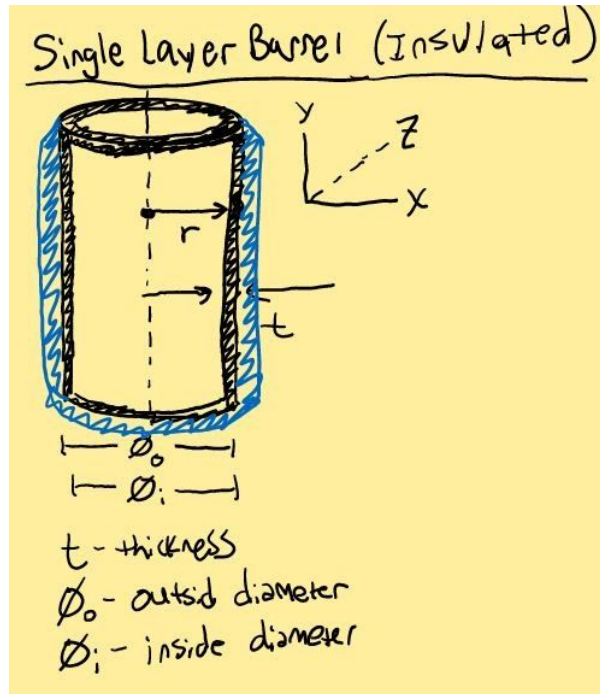 Single Layer Barrel (Insulated)
y
z
x
r
t
Ø₀
Øᵢ
t - thickness
Ø₀ - outsid diameter
Øᵢ - inside diameter